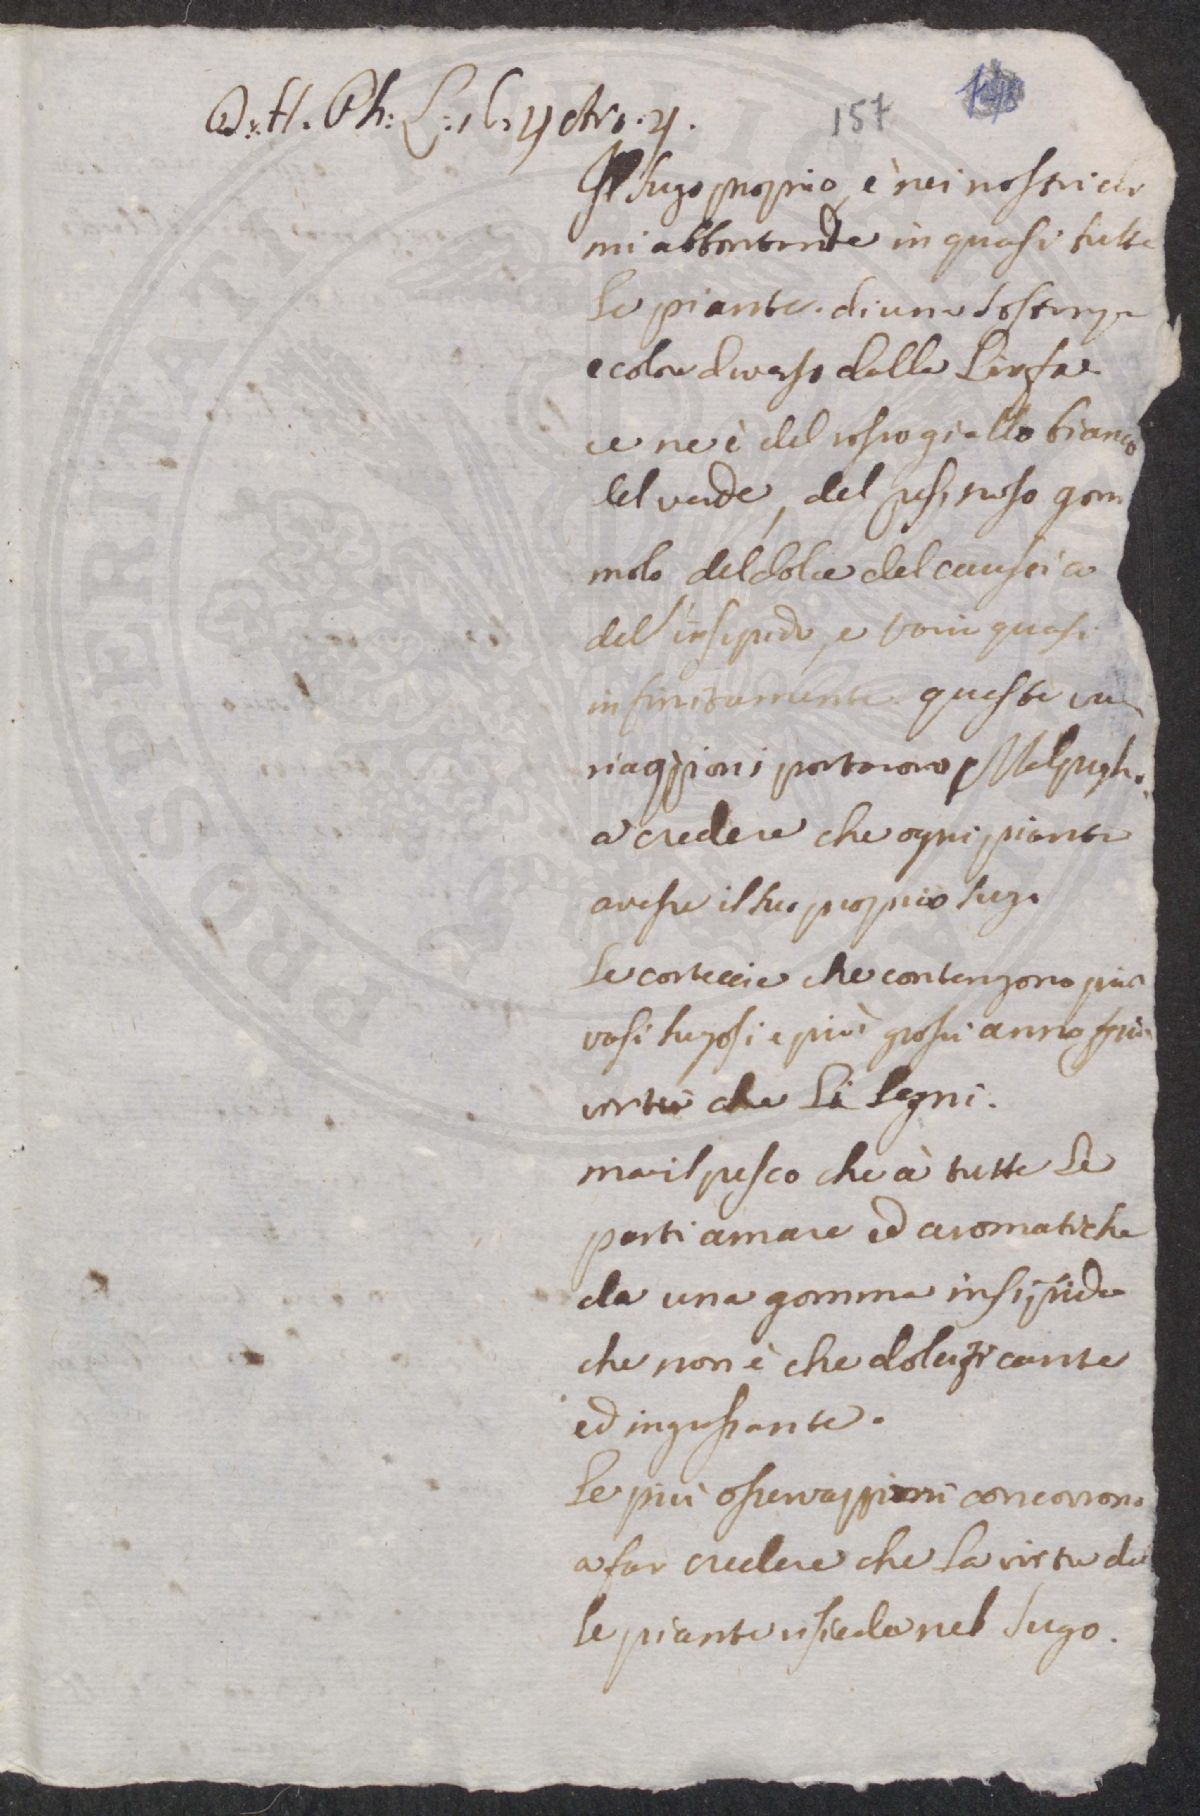 D. H. Ph: L: 1. C. 4 Art. 4.
157
Il sugo proprio è nei nostri cli
mi abbontande in quasi tutte
le piante. di una sostanza
e colore diverso dalla Linfa
ce ne è del rosso giallo bianco
del verde, del resinoso gom
moso del dolce del caustico
dell'insipido, e varia quasi
infinitamente. queste va
riazzioni portarono Malpighi
a credere che ogni pianta
avesse il suo proprio sugo
le corteccie che contengono più
vasi sugosi e più grossi anno più
virtù che li legni.
ma il pesco che à tutte le
parti amare ed aromatiche
da una gomma insipida
che non è che dolcificante
ed ingrassante.
le più osservazzioni concorrono
a far credere che la virtu del
le piante risieda nel sugo.
PROSPERINATI PUBLICAE